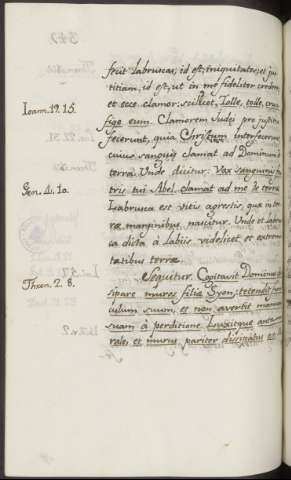 fecit labruscas, id est, iniquitates; et jus
titiam, id est, ut in me fideliter crederet
et ecce clamor: scilicet, Tolle, tolle, cruci
Ioann. 19. 15.
fige eum. Clamorem Judei pro justitia
fecerunt, quia Christum interfecerunt
cuius sanguis clamat ad Dominum de
terra. Unde dicitur. Vox sanguinis fra
Gen. 4. 10.
tris tui Abel clamat ad me de terra
Labrusca est vitis agrestis, quæ in ter
ræ marginibus nascitur. Unde et labrus
ca dicta à labiis videlicet et extremi
tatibus terræ.
Sequitur. Cogitavit Dominus dis
Thren. 2. 8.
sipare muros filiæ Syon; tetendit funi
culum suum, et non avertit manum
suam à perditione. Luxitque ante mu
rale, et murus pariter dissipatus est